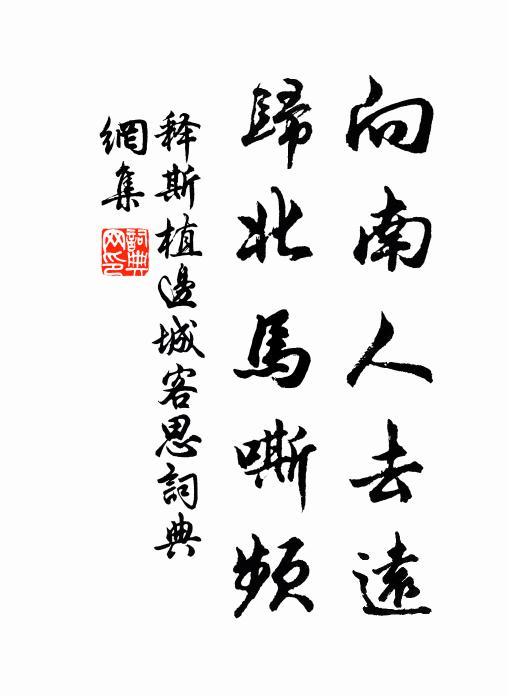 向南人去遠
歸北馬嘶頻
释斯植邊城客思詞典
網集
詞典
网印